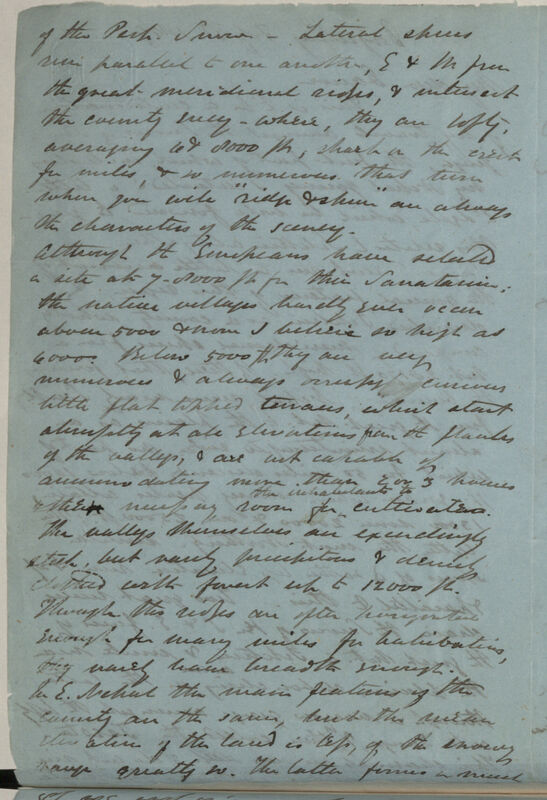 of the Perp. Snow - Lateral spurs
run parallel to one another, E & W from
the great meridional ridges, & intersect
the country every-where, they are lofty,
averaging 6 & 8000 ft, sharp on the crest
for miles, & so numerous that turn
where you will "ridge & spur" are always
the characters of the scenery.
Although the Europeans have selected
a site at 7-8000 ft for their Sanatarium,
the native villages hardly ever occur
above 5000 & none I believe so high as
6000. Below 5000 ft they are very
numerous & always occupy curious
little flat topped terraces, which start
abruptly at all elevations from the flanks
of the valleys, & are not capable of
accommodating more than 2 or 3 houses
& the necessary room for the inhabitants to cultivate.
The valleys themselves are exceedingly
steep, but rarely precipitous & densely
clothed with forest up to 12000 ft.
Though the ridges are often horizontal
enough for many miles for habitations,
they rarely have breadth enough.
In E. Nepal the main features of the
country are the same, but the mean
elevation of the land is less, of the snowy
range greatly so. The latter forms a much